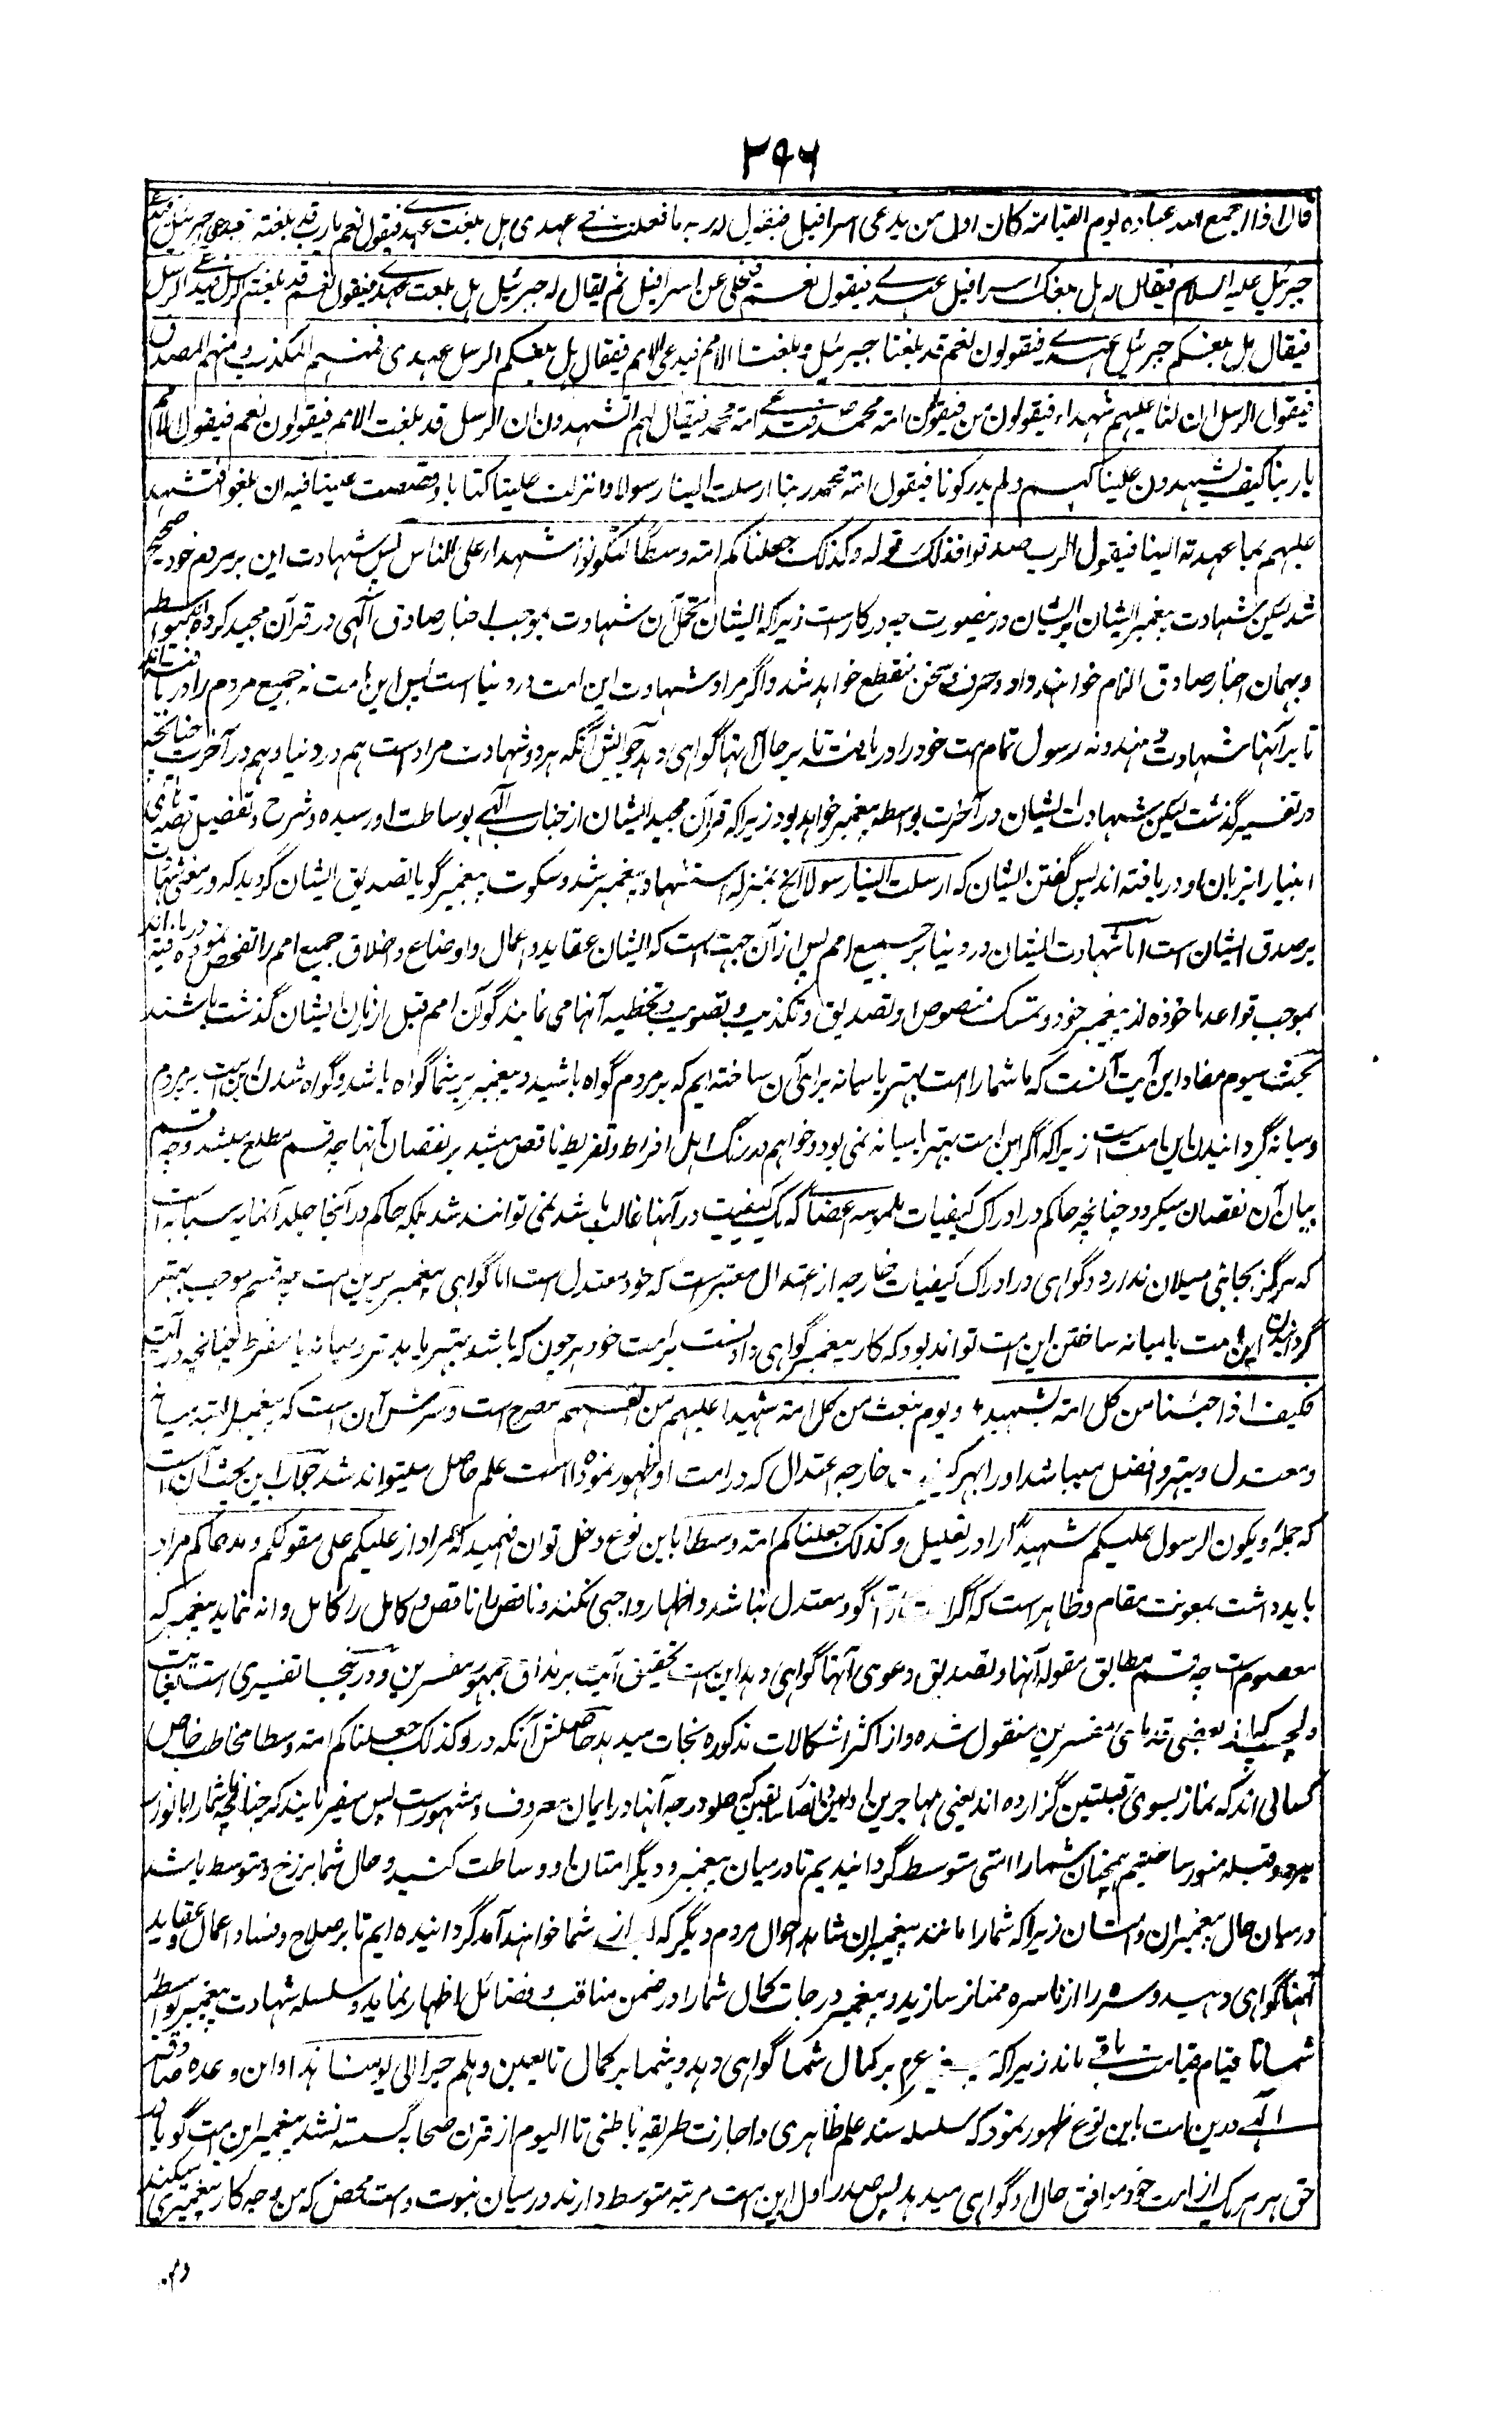 ۳۹۶
قال اذا جمع الله عباده یوم القیامة کان اول من یدعی اسرافیل فیقول له ربه ما فعلت فی عهدی هل بلغت عهدی فیقول نعم یا رب قد بلغته جبرئیل فیدعی
جبرئیل علیه السلام فیقال له هل بلغک اسرافیل عهدی فیقول نعم فیخلی عن اسرافیل ثم یقال له جبرئیل هل بلغت عهدی فیقول نعم قد بلغته الرسل فیدعی الرسل
فیقال هل بلغکم جبرئیل عهدی فیقولون نعم قد بلغنا جبرئیل و بلغنا الامم فیدعی الامم فیقال هل بلغکم الرسل عهدی فمنهم المکذب و منهم المصدق
فیقول الرسل ان لنا علیهم شهداء فیقولون من فیقولون امة محمد فتدعی امة محمد فیقال لهم اتشهدون ان الرسل قد بلغت الامم فیقولون نعم فیقول الامم
یا ربنا کیف یشهدون علینا من لم یدرکونا فیقول امة محمد ربنا ارسلت الینا رسولا و انزلت علینا کتابا و قصصت علینا فیه ان بلغوا فنشهد
علیهم بما عهدته الینا فیقول الرب صدقوا فذلک قوله و کذلک جعلناکم امة وسطا لتکونوا شهداء علی الناس پس شهادت این بر مردم خود صحیح
شد لیکن شهادت پیغمبر ایشان بر ایشان درینصورت چه در کار است زیرا که ایشان تحمل آن شهادت بموجب اخبار صادق الهی در قرآن مجید کرده اند بواسطه
و بهمان اخبار صادق الزام خواهند داد و حرف و سخن منقطع خواهد شد و اگر مراد شهادت این امت در دنیا است پس این امت نه جمیع مردم را دریافته اند
تا بر آنها شهادت دهند و نه رسول تمام امت خود را دریافته تا بر حال آنها گواهی دهد جوابش آنکه هر دو شهادت مراد است هم در دنیا و هم در آخرت چنانچه
در تفسیر گذشت لیکن شهادت ایشان در آخرت بواسطه پیغمبر خواهد بود زیرا که قرآن مجید ایشان از جناب الهی بوساطت او رسیده و شرح و تفصیل قصه های
انبیا را بزبان او دریافته اند پس گفتن ایشان که ارسلت الینا رسولا الخ بمنزله استشهاد پیغمبر شد و سکوت پیغمبر گویا تصدیق ایشان گردید که در معنی شهادت
بر صدق ایشان است اما شهادت ایشان در دنیا بر جمیع امم پس از آن جهت است که ایشان عقاید و اعمال و اوضاع و اخلاق جمیع امم را تفحص نموده دریافته اند
بموجب قواعد ماخوذه از پیغمبر خود و تمسک بنصوص او تصدیق و تکذیب و تصویب و تخطیه آنها می نمایند گو آن امم قبل از زمان ایشان گذشته باشند
بحث سیوم مفاد این آیت آنست که ما شما را امت بهتر یا میانه برای آن ساخته ایم که بر مردم گواه باشید و پیغمبر بر شما گواه باشد و گواه شدن این امت بر مردم
و میانه گردانیدن این امت است زیرا که اگر این امت بهتر یا میانه نمی بود و خواهم در رنگ اهل افراط و تفریط ناقص میشد بر نقصان آنها چه قسم مطلع میشد و چه قسم
بیان آن نقصان میکرد و چنانچه حاکم در ادراک کیفیات ملموسه اعضا که یک کیفیت در آنها غالب باشد نمی توانند شد بلکه حاکم در آنجا جلد انمله سبابه است
که هرگز بجانبی میلان ندارد و گواهی در ادراک کیفیات خارجه از اعتدال معتبر است که خود معتدل است اما گواهی پیغمبر برین امت چه قسم موجب بهتر
گردانیدن این امت یا میانه ساختن این امت تواند بود که کار پیغمبر گواهی دادنست بر امت خود هر چون که باشد بهتر یا بدتر و میانه یا مفرط چنانچه در آیت
فکیف اذا جئنا من کل امة بشهید و یوم نبعث من کل امة شهیدا علیهم من انفسهم مصرح است و سرش آن است که پیغمبر البته میانه
و معتدل و بهتر و افضل میباشد او را بهر خارجه اعتدال که در امت او ظهور نموده است علم حاصل میتواند شد جواب این بحث آن است
که جمله و یکون الرسول علیکم شهیدا را در تعلیل و کذلک جعلناکم امة وسطا باین نوع دخل توان فهمید که مراد از علیکم علی مقولکم و مدعاکم مراد
باید داشت بمعونت مقام و ظاهر است که اگر گو معتدل نباشد و اظهار واجبی نکند و ناقص را ناقص و کامل را کامل وا نه نماید پیغمبر که
معصوم است چه قسم مطابق مقوله آنها و تصدیق دعوی آنها گواهی دهد این است تحقیق آیت بر مذاق جمهور مفسرین و در اینجا تفسیری است بغایت
دلچسپ که از بعضی قدمای مفسرین منقول شده و از اکثر اشکالات مذکوره نجات میدهد حاصلش آنکه در و کذلک جعلناکم امة وسطا مخاطب خاص
کسانی اند که نماز بسوی قبلتین گزارده اند یعنی مهاجرین اولین و انصار سابقین که علو درجه آنها در ایمان معروف و مشهور است پس میفرمایند که چنانچه شما را با نور
هر دو قبله منور ساختیم همچنان شما را امتی متوسط گردانیدیم تا درمیان پیغمبر و دیگر امتان او وساطت کنید و حال شما برزخ و متوسط باشد
درمیان حال پیغمبران و امتان زیرا که شما را مانند پیغمبران شاهد احوال مردم دیگر که بعد از شما خواهند آمد گردانیده ایم تا بر صلاح و فساد اعمال و عقاید
آنها گواهی دهید و سره را از ناسره ممتاز سازید و پیغمبر درجات کمال شما را در ضمن مناقب و فضائل اظهار نماید و سلسله شهادت پیغمبر بواسطه
شما تا قیام قیامت باقی ماند زیرا که بر کمال شما گواهی دهد و شما بر کمال تابعین و هلم جرا الی یومنا هذا و این وعده صادقه
الهی درین امت باین نوع ظهور نمود که سلسله سند علم ظاهری و اجازت طریقه باطنی تا الیوم از قرن صحابه گسسته نشد پیغمبر این امت گویا در
حق هر هر یک از امت خود موافق حال او گواهی میدهد پس صدر اول این امت مرتبه متوسط دارند درمیان نبوت و امت محض که من وجه کار پیغمبری میکنند